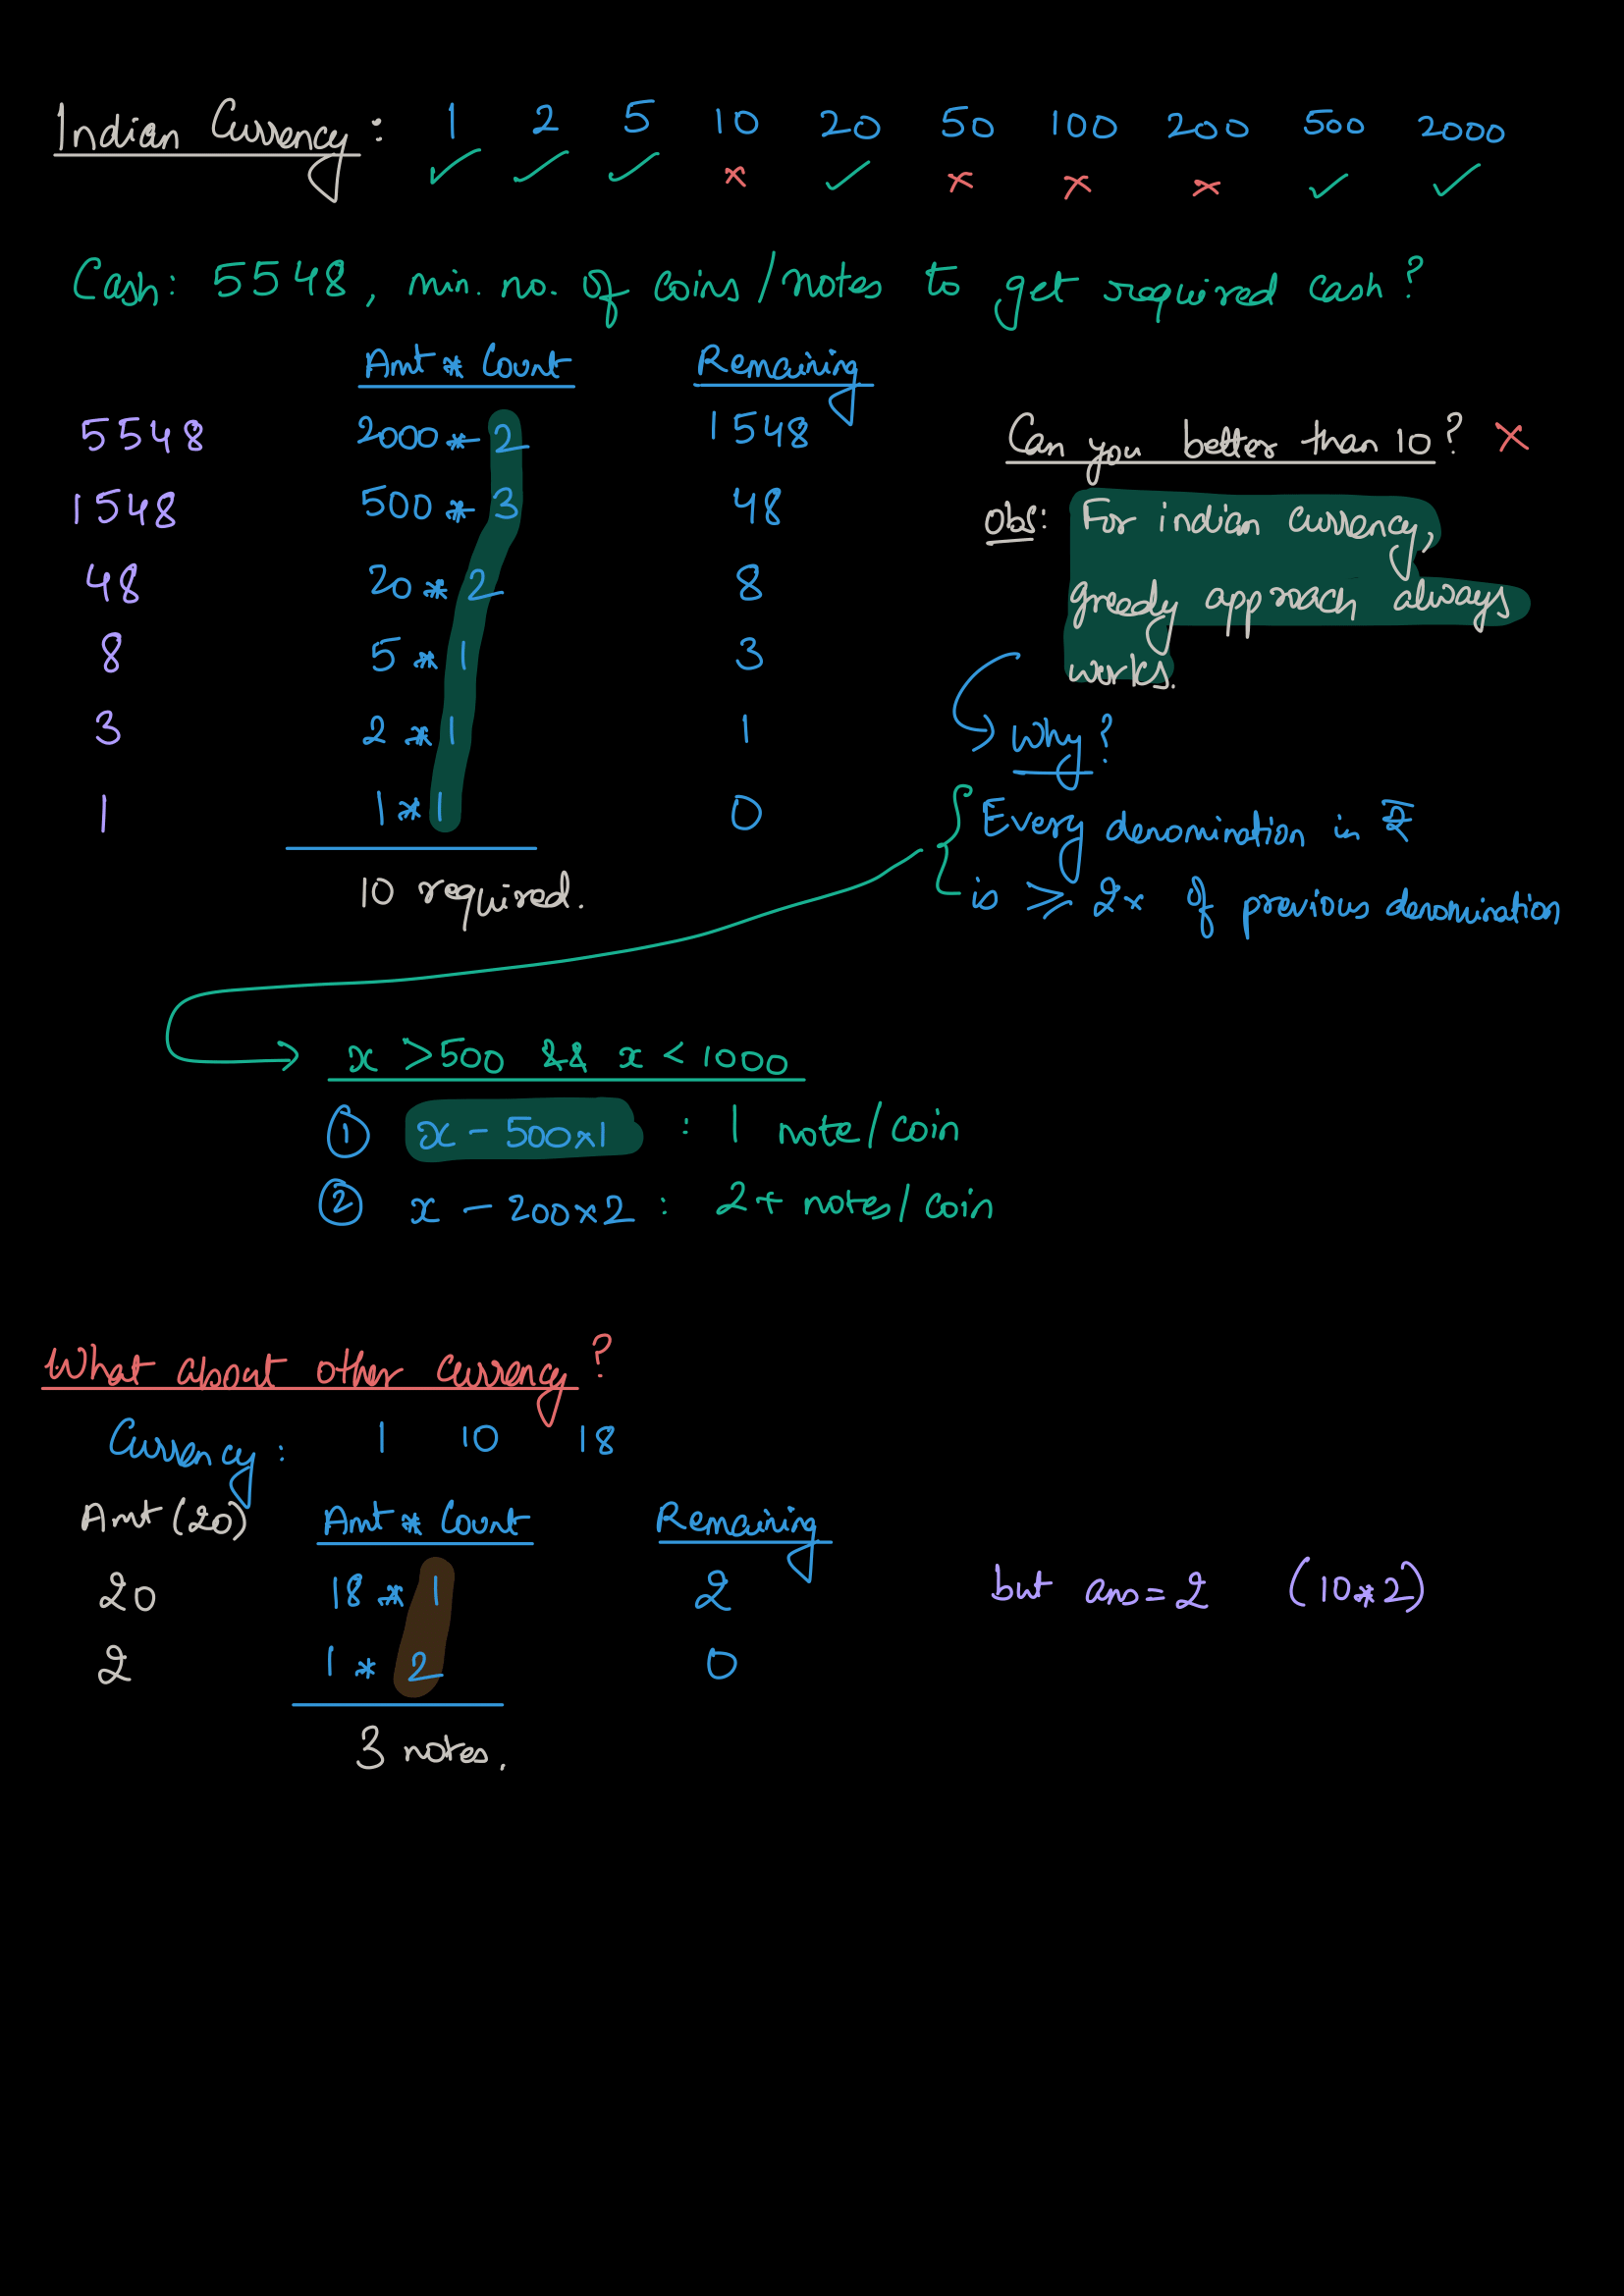 Indian Currency : 1 2 5 10 20 50 100 200 500 2000
✓ ✓ ✓ × ✓ × × × ✓ ✓
Cash: 5548, min. no. of coins/notes to get required cash?
Amt * Count Remaining
5548 2000 * 2 1548
1548 500 * 3 48
48 20 * 2 8
8 5 * 1 3
3 2 * 1 1
1 1 * 1 0
10 required.
Can you better than 10? ×
Obs: For indian currency,
greedy approach always
works.
Why?
Every denomination in ₹
is ⩾ 2x of previous denomination
x > 500 && x < 1000
① x - 500x1 : 1 note/coin
② x - 200x2 : 2+ notes/coin
What about other currency?
Currency : 1 10 18
Amt (20) Amt * Count Remaining
20 18 * 1 2 but ans = 2 (10*2)
2 1 * 2 0
3 notes.